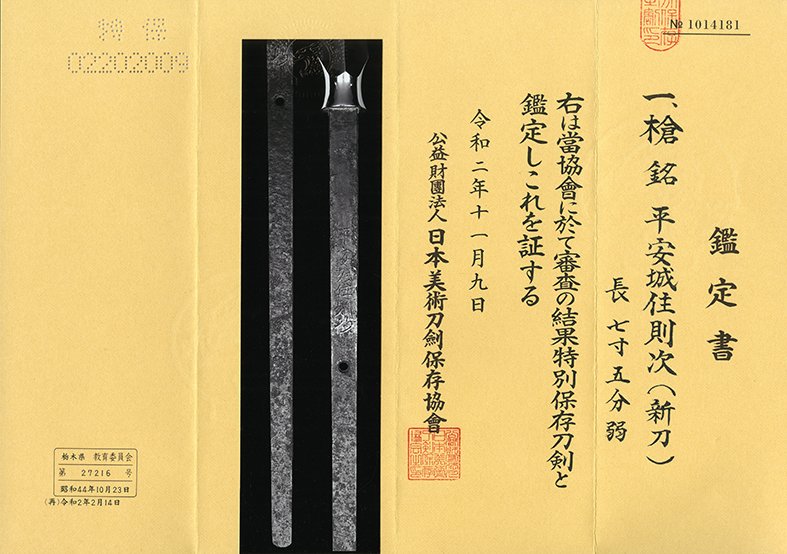 № 1014181
鑑定書
一、槍 銘 平安城住則次(新刀)
長 七寸五分弱
右は當協會に於て審査の結果特別保存刀剣と
鑑定しこれを証する
令和二年十一月九日
公益財團法人 日本美術刀劍保存協會
特保
02202009
栃木県 教育委員会
第 27216 号
昭和44年10月23日
(再)令和2年2月14日